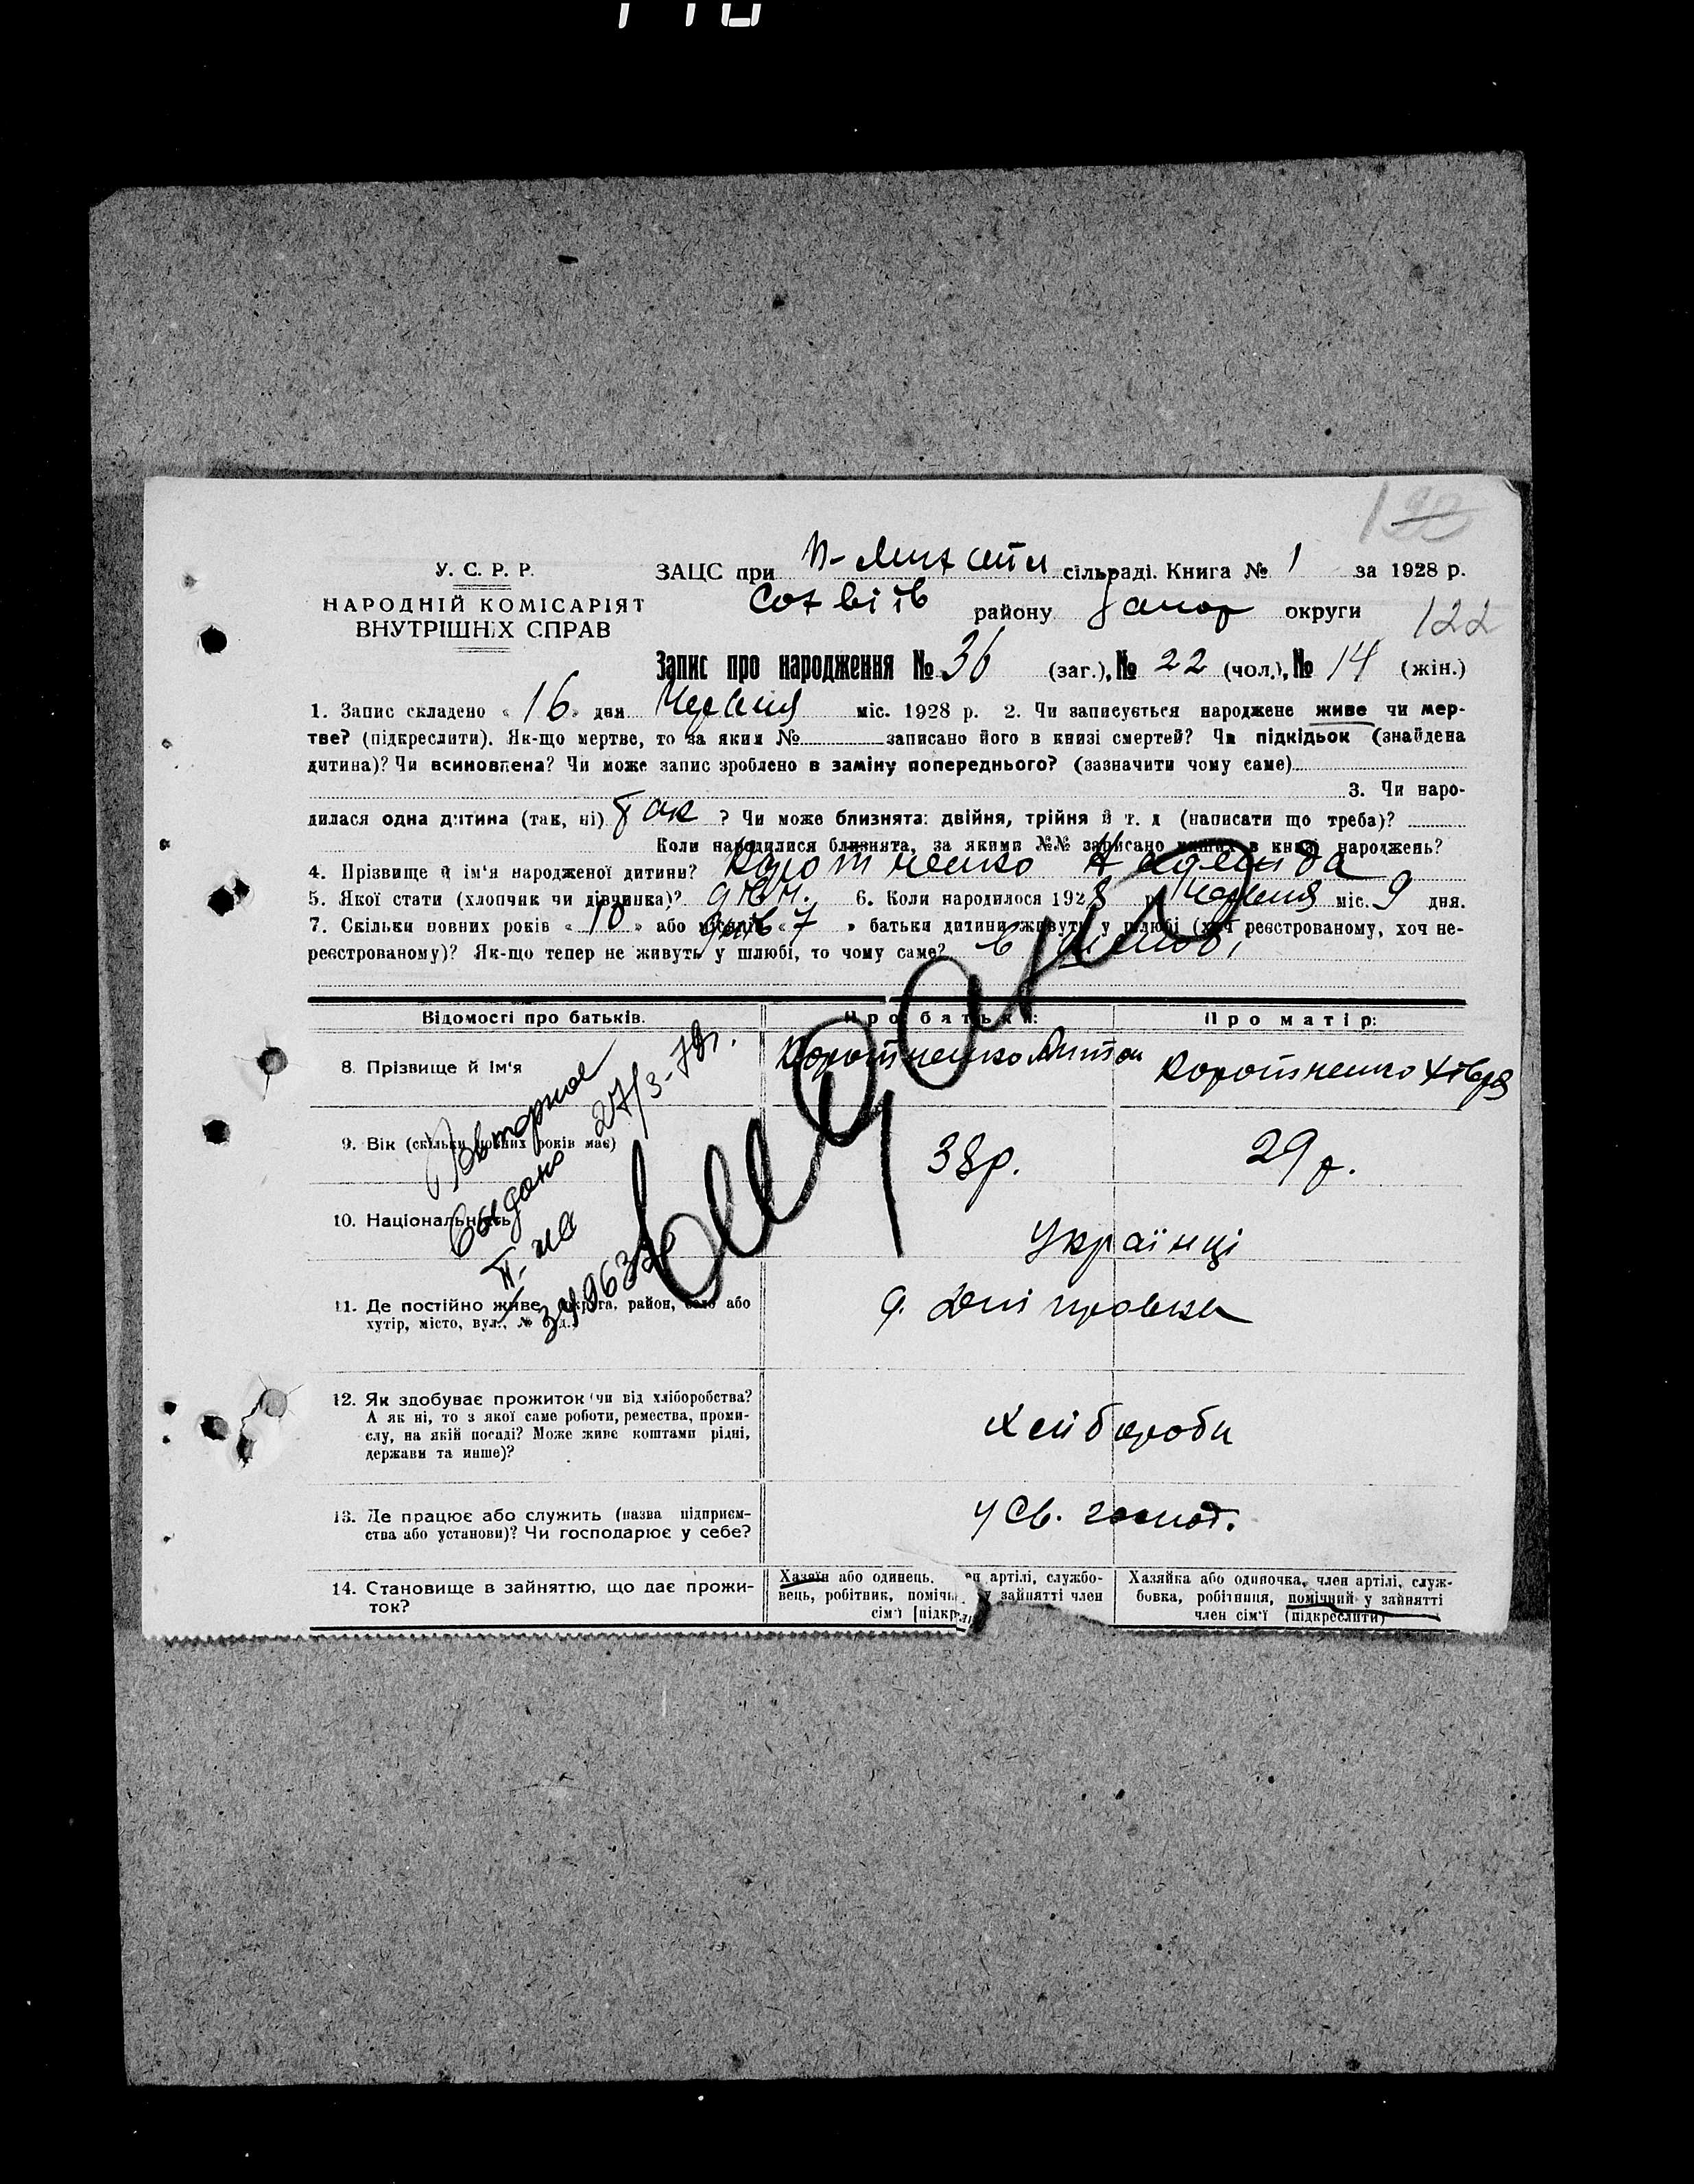 У. С. Р. Р.
НАРОДНІЙ КОМІСАРІЯТ
ВНУТРІШНІХ СПРАВ
ЗАЦС при сільраді. Книга № 1 за 1928 р.
району Запор округи
122
Запис про народження № 36 (заг.), № 22 (чол.), № 14 (жін.)
1. Запис складено « 16 » дня Червня міс. 1928 р. 2. Чи записується народжене живе чи мер-
тве? (підкреслити). Як-що мертве, то за яким № записано його в книзі смертей? Чи підкідьок (знайдена
дитина)? Чи всиновлена? Чи може запис зроблено в заміну попереднього? (зазначити чому саме)
3. Чи наро-
дилася одна дитина (так, ні) Так ? Чи може близнята: двійня, трійня й т. д (написати що треба)?
Коли народилися близнята, за якими №№ записано инших в книзі народжень?
4. Прізвище й ім'я народженої дитини? Коротченко Надежда
5. Якої стати (хлопчик чи дівчинка)? дівч. 6. Коли народилося 1928 р. Червня міс. 9 дня.
7. Скільки повних років « 10 » або місяців « 7 » батьки дитини живуть у шлюбі (хоч реєстрованому, хоч не-
реєстрованому)? Як-що тепер не живуть у шлюбі, то чому саме? в шлюбі
Відомості про батьків. Про батька: Про матір:
8. Прізвище й ім'я Коротченко Антон Коротченко Хівря
9. Вік (скільки повних років має) 38 р. 29 р.
10. Національність Українці
11. Де постійно живе (округа, район, село або
хутір, місто, вул., № буд.) Дніпровка
12. Як здобуває прожиток (чи від хліборобства?
А як ні, то з якої саме роботи, ремества, проми-
слу, на якій посаді? Може живе коштами рідні,
держави та инше)? Хліборобы
13. Де працює або служить (назва підприєм-
ства або установи)? Чи господарює у себе? у св. господ.
14. Становище в зайняттю, що дає прожи-
ток?
Хазяїн або одинець, член артілі, службо-
вець, робітник, помічн у зайнятті член
сім'ї [підкр
Хазяйка або одиночка, член артілі, служ-
бовка, робітниця, помічний у зайнятті
член сім'ї (підкреслити)
Повторное
выдано 27/3-79г.
II-